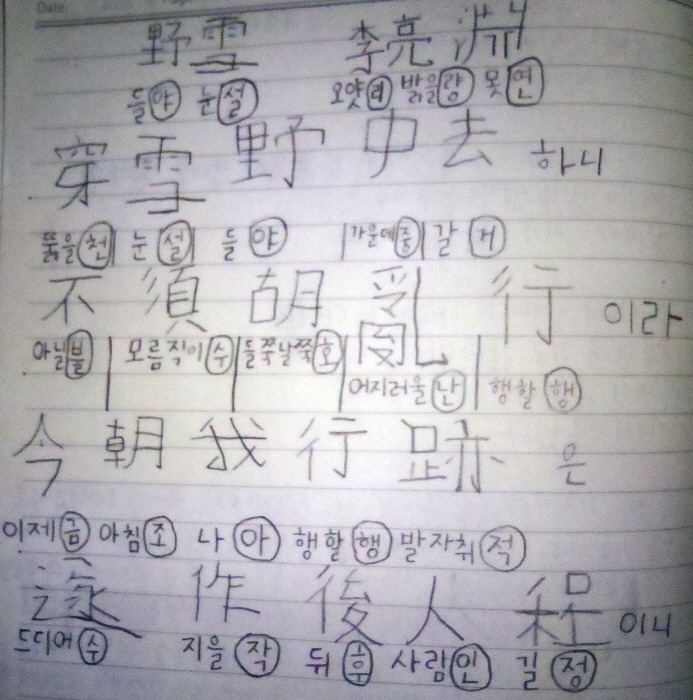 Date.
野雪 李亮淵
들 야 눈 설 오얏 리 밝을 랑 못 연
穿雪野中去 하니
뚫을 천 눈 설 들 야 가운데 중 갈 거
不須胡亂行 이라
아닐 불 모름직이 수 들쭉날쭉 호
어지러울 난 행할 행
今朝我行跡 은
이제 금 아침 조 나 아 행할 행 발자취 적
遂作後人程 이니
드디어 수 지을 작 뒤 후 사람 인 길 정